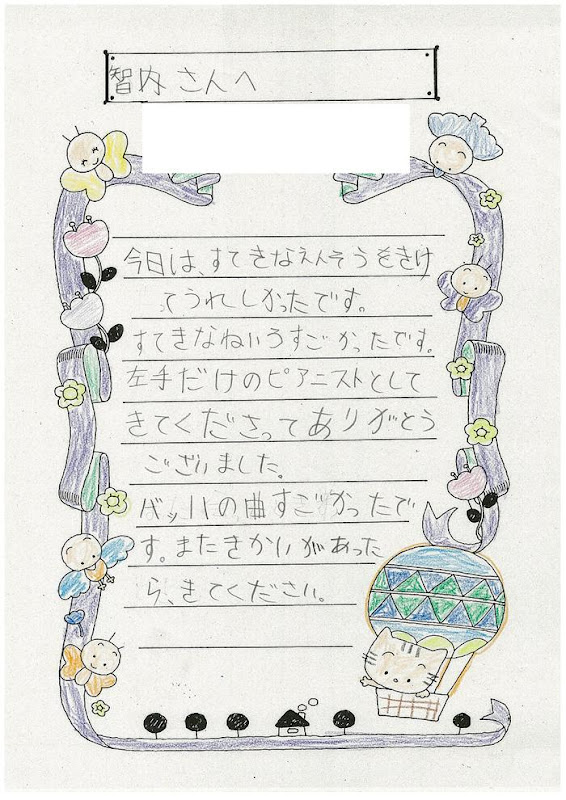 智内さんへ
今日は、すてきなえんそうをきけ
てうれしかったです。
すてきなねいろすごかったです。
左手だけのピアニストとして
きてくださってありがとう
ございました。
バッハの曲すごかったで
す。またきかいがあった
ら、きてください。